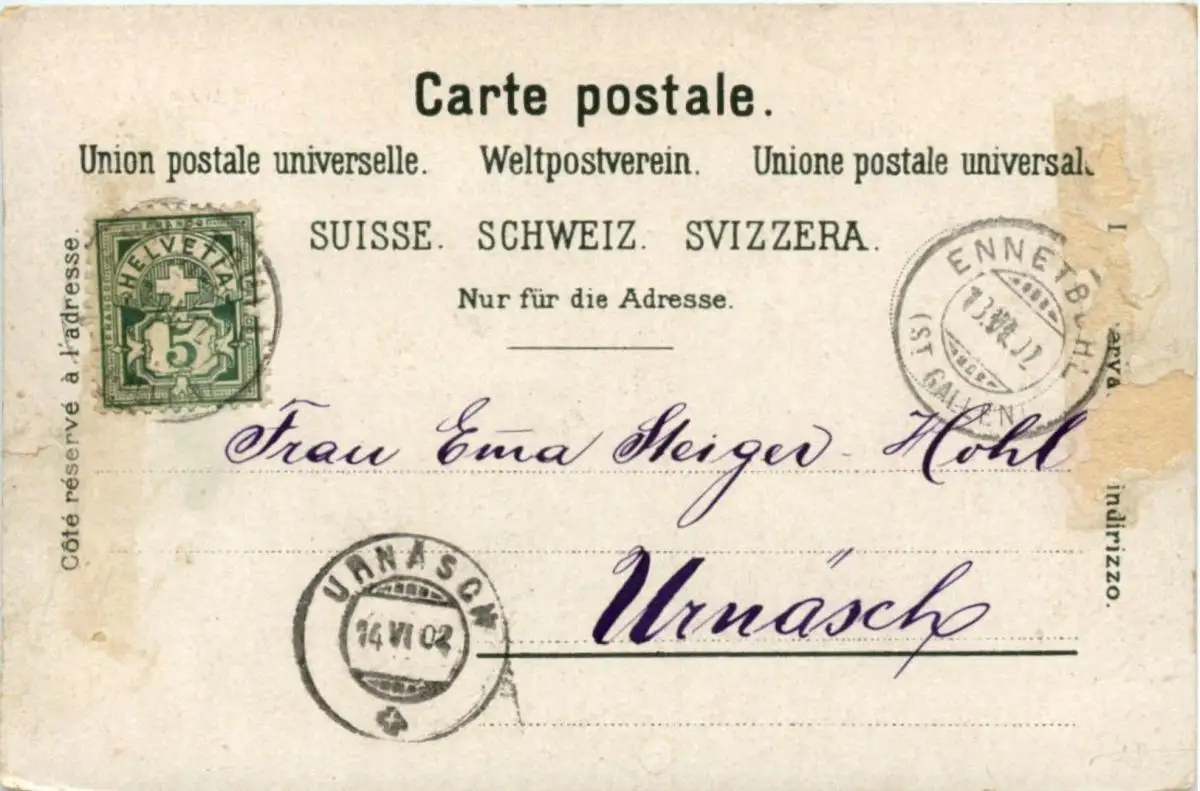 Carte postale.
Union postale universelle. Weltpostverein. Unione postale universale
SUISSE. SCHWEIZ. SVIZZERA.
Nur für die Adresse.
Côté réservé à l'adresse.
HELVETIA
5
ENNETBÜHL
(ST GALLEN)
Frau Em̄a Steiger-Hohl
Urnäsch
URNÄSCH
14 VI 02
indirizzo.